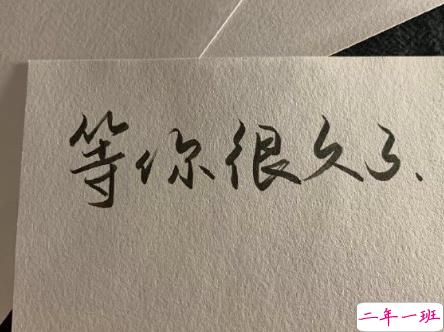 等你很久了、
二年一班